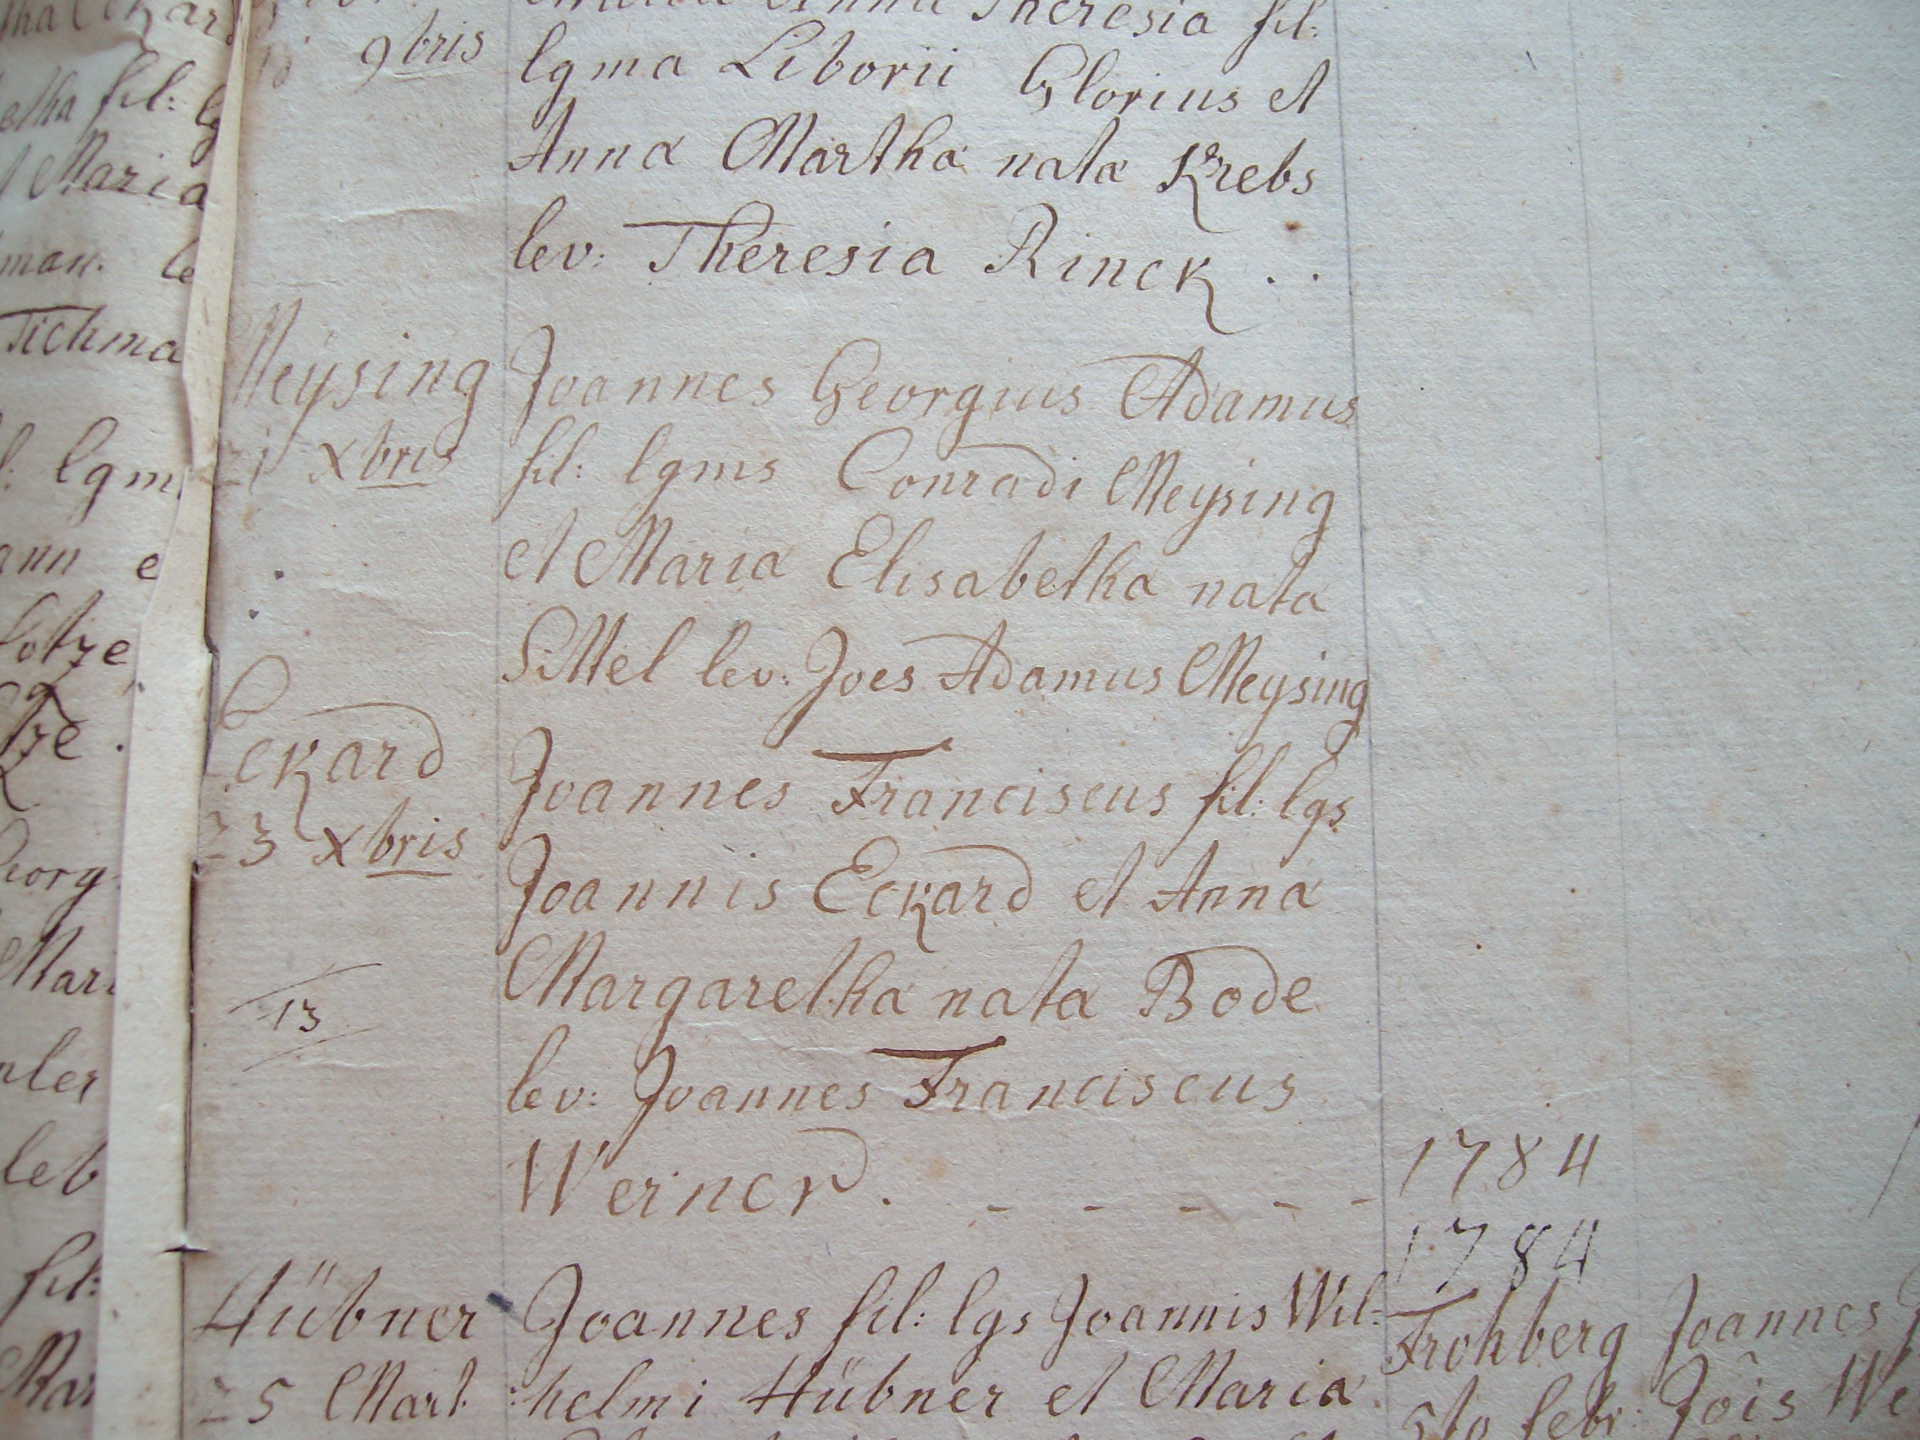 Theresia fil:
9bris lgma Liborii Glorius et
Anna Martha nata Krebs
lev: Theresia Rinck . .
Meysing Joannes Georgius Adamus
21 Xbris fil: lgms Conradi Meysing
et Maria Elisabetha nata
Sittel lev: Joes Adamus Meysing
Eckard Joannes Franciscus fil: lgs
23 Xbris Joannis Eckard et Anna
Margaretha nata Bode
13
lev: Joannes Franciscus
Werner . - - - - -
1784
1784
Hübner Joannes fil: lgs Joannis Wil=
25 Mart :helmi Hübner et Maria
Frohberg Joannes
5to febr: Jois We
etha fil: lg
Maria
man. le
Tichma
lgm
ann e
Lotze
tze .
eorg
Mari
ler
leb
fil:
Mar